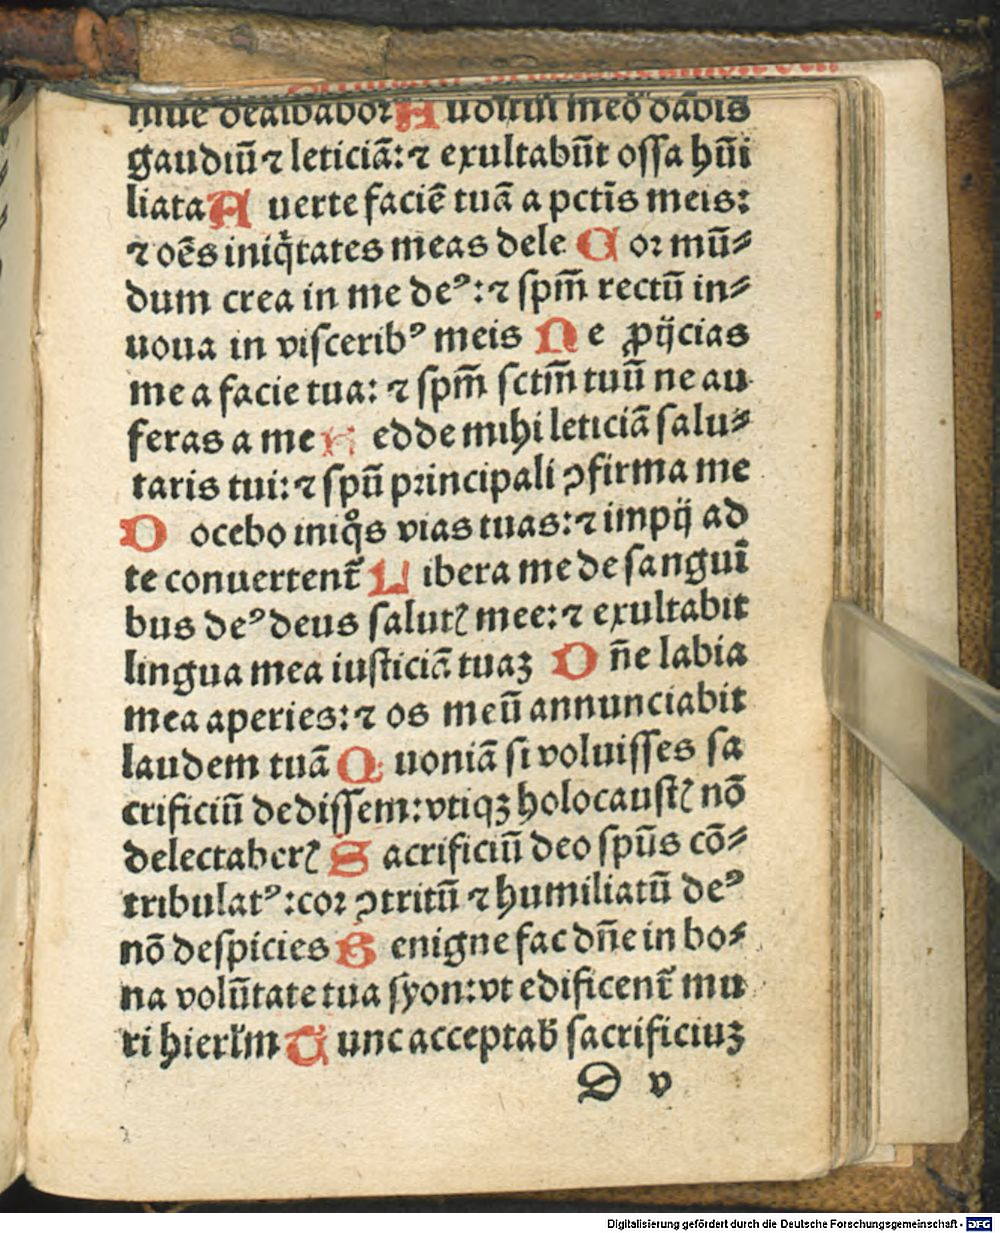 niue dealbabor Auditui meo dabis
gaudiū ⁊ leticiā: ⁊ exultabūt ossa hūi
liata Auerte faciē tuā a pctīs meis:
⁊ oēs iniq̇tates meas dele Cor mū⸗
dum crea in me deꝰ: ⁊ spm̄ rectū in⸗
noua in visceribꝰ meis Ne ꝓijcias
me a facie tua: ⁊ spm̄ sctm̄ tuū ne au
feras a me Redde mihi leticiā salu⸗
taris tui: ⁊ spū principali ꝯfirma me
Docebo iniqͦs vias tuas: ⁊ impij ad
te conuertent̄ Libera me de sanguī
bus deꝰ deus salutꝭ mee: ⁊ exultabit
lingua mea iusticiā tuaꝫ Dn̄e labia
mea aperies: ⁊ os meū annunciabit
laudem tuā Quoniā si voluisses sa
crificiū dedissem: vtiqꝫ holocaustꝭ nō
delectaberꝭ Sacrificiū deo spūs cō⸗
tribulatꝰ: cor ꝯtritū ⁊ humiliatū deꝰ
nō despicies Benigne fac dn̄e in bo⸗
na volūtate tua syon: vt edificent̄ mu
ri hierl̄m Tunc acceptab̄ sacrificiuꝫ
D v
Digitalisierung gefördert durch die Deutsche Forschungsgemeinschaft - DFG